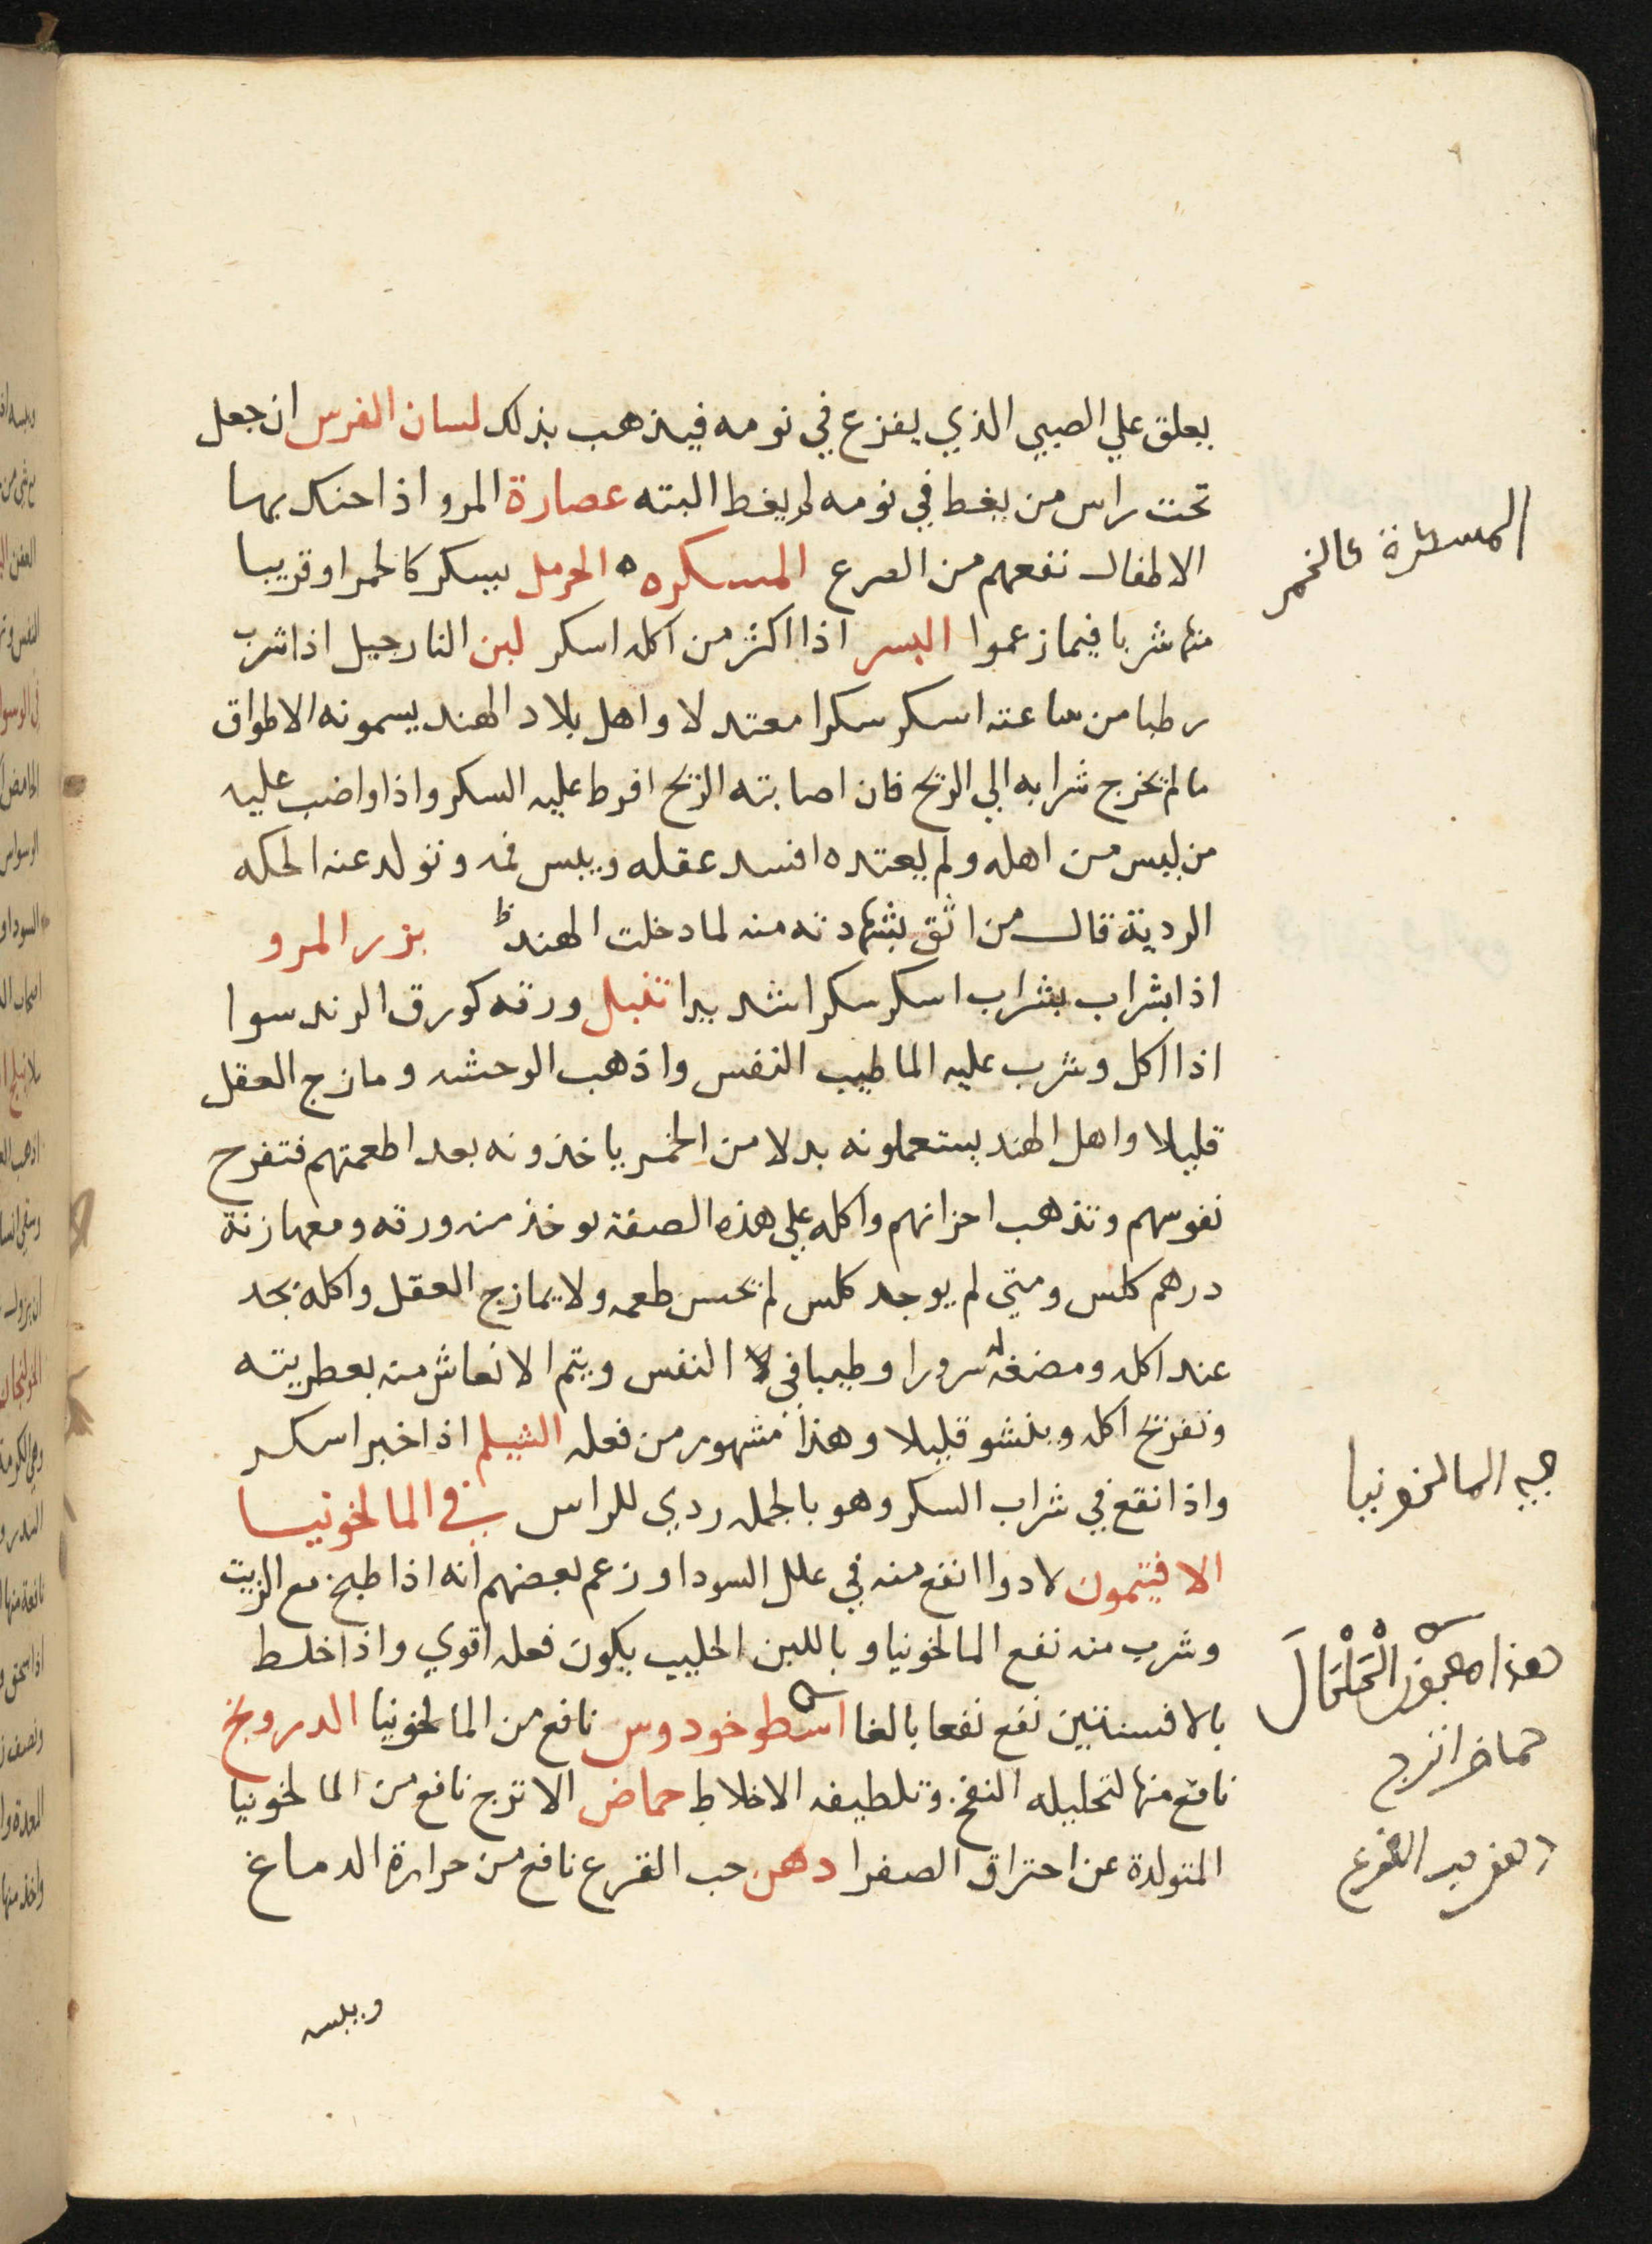 يعلق علي الصبي الذي يفزع في نومه فيذهب بذلك لسان الفرس ان جعل
تحت راس من يغط في نومه لم يغط البته عصارة المرو اذا حنك بها
الاطفال نفعهم من الصرع المسكره الحرمل يسكر كالخمر او قريبا
منها شربا فيما زعموا البسر اذا اكثر من اكله اسكر لبن النارجيل اذا شرب
رطبا من ساعته اسكر سكرا معتدلا واهل بلاد الهند يسمونه الاطواق
مالم تخرج شرابه الي الريح فان اصابته الريح افرط عليه السكر واذا واضب عليه
من ليس من اهله ولم يعتده افسد عقله ويبس فمه وتولد عنه الحكه
الردية قال من اثق بشهادته منه لما دخلت الهند بزر المرو
اذا بشراب بشراب اسكر سكرا شديدا تنبل ورقه كورق الرند سوا
اذا اكل وشرب عليه الما طيب النفس واذهب الوحشه ومازج العقل
قليلا واهل الهند يستعملونه بدلا من الخمر ياخذونه بعد اطعمتهم فتفرح
نفوسهم وتذهب احزانهم واكله علي هذه الصفة يوخذ من ورقه ومعها زنة
درهم كلس ومتي لم يوجد كلس لم تحسن طعمه ولا يمازج العقل واكله نجد
عند اكله ومضغه له سرورا وطيبا في النفس ويتم الانعاش منه بعطريته
وتفريح اكله وينشو قليلا وهذا مشهور من فعله الشيلم اذا خبر اسكر
واذا نقع في شراب السكر وهو بالجمله ردي للراس في المالخونيا
الافيتمون لا دوا انفع منه في علل السودا وزعم بعضهم انه اذا طبخ مع الزيت
وشرب منه نفع المالخونيا وباللبن الحليب يكون فعله اقوي واذا خلط
بالافسنتين نفع نفعا بالغا اسطوخودوس نافع من المالخونيا الدرونج
نافع منها لتحليله النفخ وتلطيفه الاخلاط حماض الاترج نافع من المالخونيا
المتولدة عن احتراق الصفرا دهن حب القرع نافع من حرارة الدماغ
ويبسه
المسكرة كالخمر
المالخونيا
هذا معجون
حماض اترج
دهن حب القرع